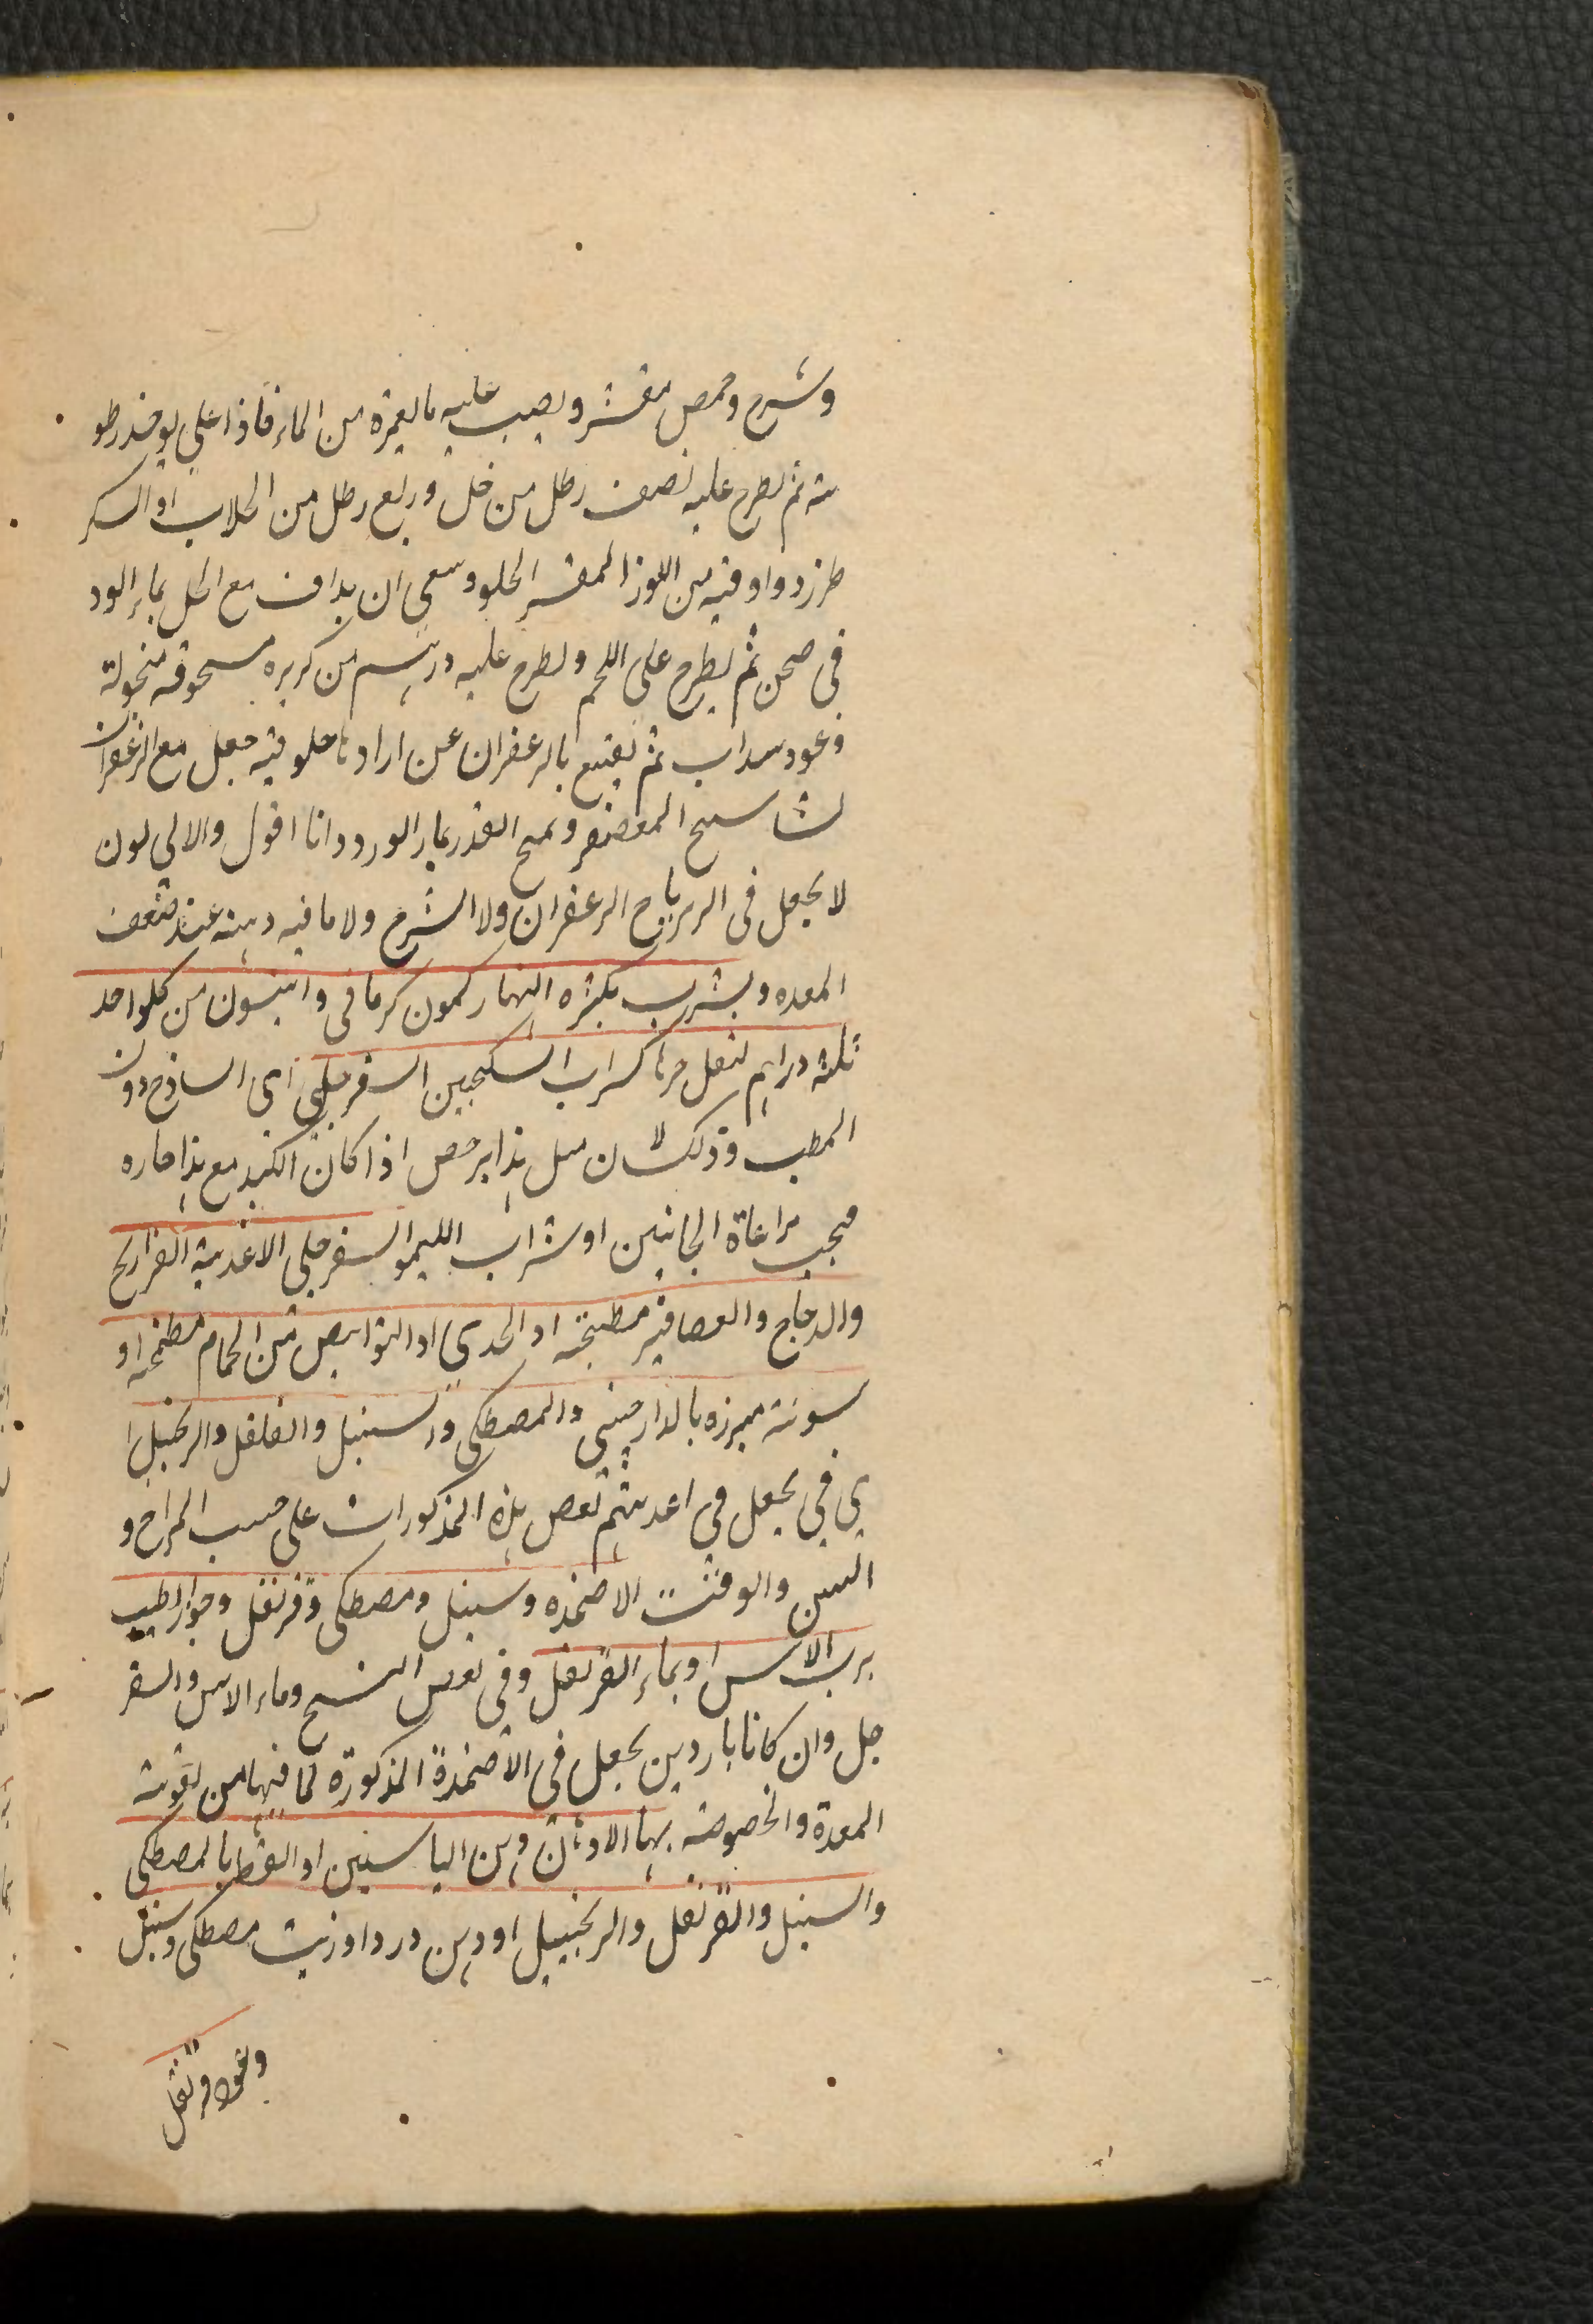 وشيرج وحمص مقشر ويصب عليه ما يغمره من الماء فاذا اغلى يوخذ رطو
بته ثم يطرح عليه نصف رطل من خل وربع رطل من الجلاب او السكر
طبرزد واوقيه من اللوز المقشر الحلو وينبغى ان يداف مع الخل بماء الورد
فى صحن ثم يطرح على اللحم ويطرح عليه درهم من كزبره مسحوقه منخولة
وعود سداب ثم يصبغ بالزعفران من ارادها حلوفيه جعل مع الزعفران
المعصفر ويمسح القدر بماء الورد وانا اقول والاولى كون
لا يجعل فى الزيرباج الزعفران ولا الشيرج ولا ما فيه دهنه عند ضعف
المعده ويشرب بكره النهار كمون كرمانى وانيسون من كلواحد
ثلثه دراهم شراب السكنجبين السفرجلى اى الساذج دون
المطيب وذلك لان مثل هذا يرخص اذا كان الكبد مع هذا حاره
فيجب مراعاة الجانبين او شراب الليمو السفرجلى الاغذية الفراريج
والدجاج والعصافير مطبخه او الجدى او النواهض من الحمام مطبخه او
مشوية مبزره بالدارصينى والمصطكى والسنبل والفلفل والزنجبيل ا
ى فى يجعل فى اغذيتهم بعض هذه المذكورات على حسب المزاج و
السن والوقت الاضمده وسنبل ومصطكى وقرنفل وجوز الطيب
برب الاس او بماء القرنفل وفى بعض النسخ وماء الاس والسفر
جل وان كانا باردين يجعل فى الاضمدة المذكورة لما فيهما من تقويه
المعدة والخصوصه بها الادهان دهن الياسمين او القسط بالمصطكى
والسنبل والقرنفل والزنجبيل او دهن ورد او زيت مصطكى وسنبل
وعود وقرنفل